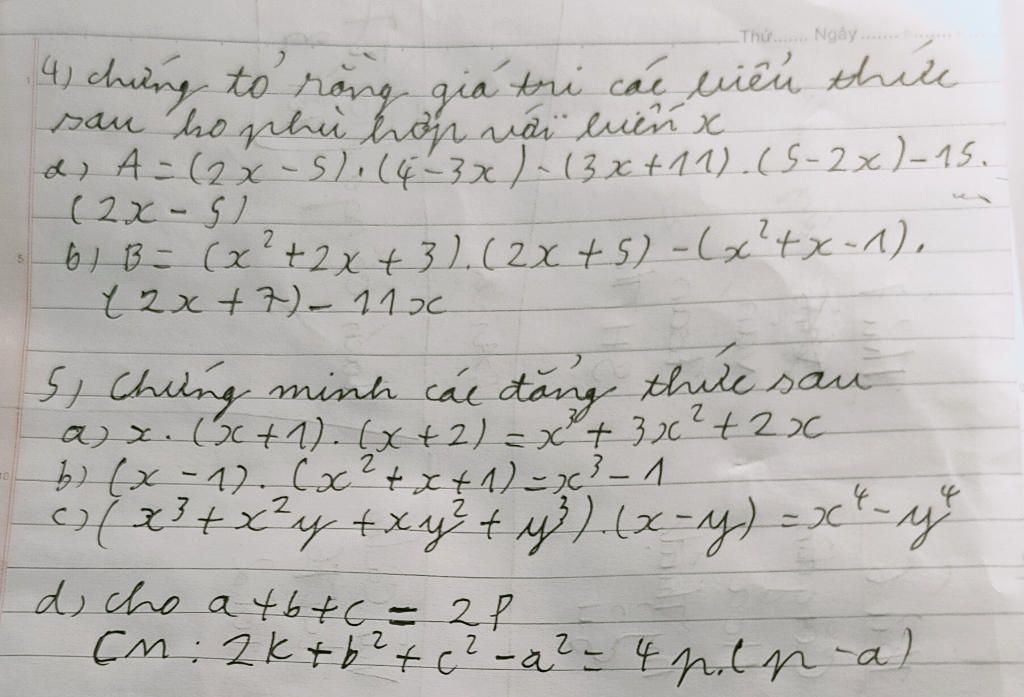 Thứ....... Ngày..............
4) chứng tỏ rằng giá tri các biểu thức
sau ko phù hợp với biến x
a) A = (2x - 5).(4 - 3x) - (3x + 11).(5 - 2x) - 15.
(2x - 5)
b) B = (x² + 2x + 3).(2x + 5) - (x² + x - 1).
(2x + 7) - 11x
5) Chứng minh các đẳng thức sau
a) x.(x + 1).(x + 2) = x³ + 3x² + 2x
b) (x - 1).(x² + x + 1) = x³ - 1
c) (x³ + x²y + xy² + y³).(x - y) = x⁴ - y⁴
d) cho a + b + c = 2P
CM: 2k + b² + c² - a² = 4p.(p - a)